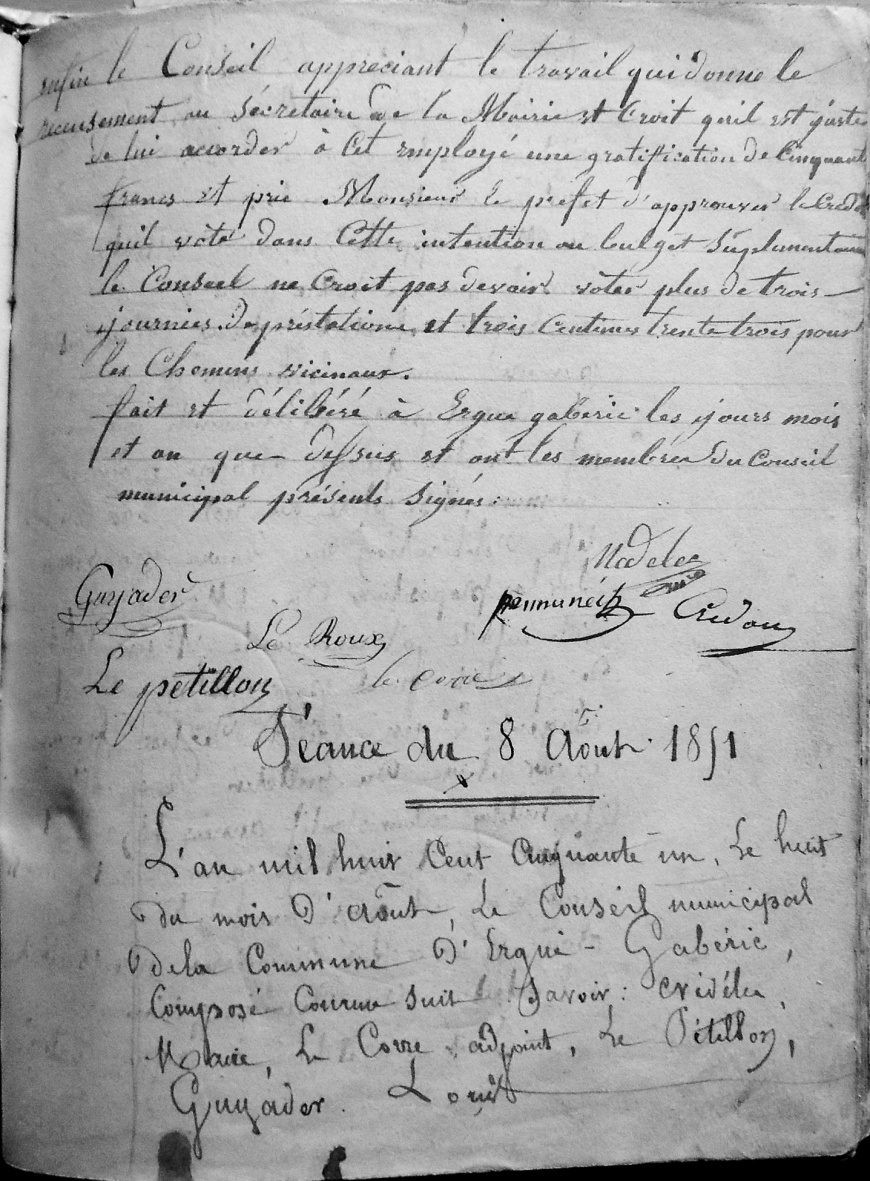 enfin le Conseil appreciant le travail qui donne le
recensement au sécretaire de la Mairie et Croit qu'il est juste
de lui accorder à Cet employé une gratification de Cinquante
francs et prie Monsieur le préfet d'approuver le Crédit
quil vote dans Cette intention au budget Suplementaire
le Conseil ne Croit pas devoir voter plus de trois
journées de préstations et trois Centimes trente trois pour
les Chemins vicinaux.
fait et délibéré à Ergue gabéric les jours mois
et an que dessus et ont les membres du Conseil
municipal présents signés:
Guyader
Le Roux
Le petillon
le corre
Séance du 8 Août 1851
L'an mil huit Cent Cinquante un, Le huit
du mois D'août, Le Conseil municipal
de la Commune D'Ergué-Gabéric,
Composé Comme Suit Savoir:
Maire, Le Corre adjoint, Le Pétillon,
Guyader.